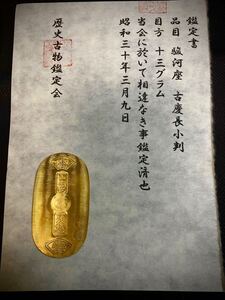 鑑定書
品目 駿河座 古慶長小判
目方 十三グラム
当会に於いて相違なき事鑑定済也
昭和三十年三月九日
歴史古物鑑定会